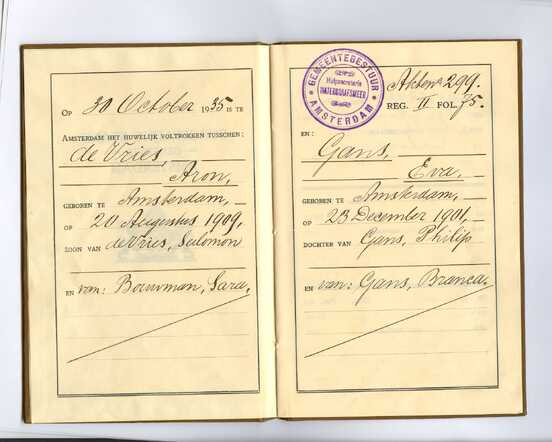 OP 30 October 1935 IS TE
AMSTERDAM HET HUWELIJK VOLTROKKEN TUSSCHEN:
de Vries,
Aron,
GEBOREN TE Amsterdam,
OP 20 Augustus 1909,
ZOON VAN de Vries, Salomon
EN van: Bouwman, Sara.
GEMEENTEBESTUUR
Hulpsecretarie
WATERGRAAFSMEER
AMSTERDAM
Akte No 299.
REG. II FOL. 75.
EN:
Gans,
Eva,
GEBOREN TE Amsterdam,
OP 23 December 1901,
DOCHTER VAN Gans, Philip
EN van: Gans, Branca.